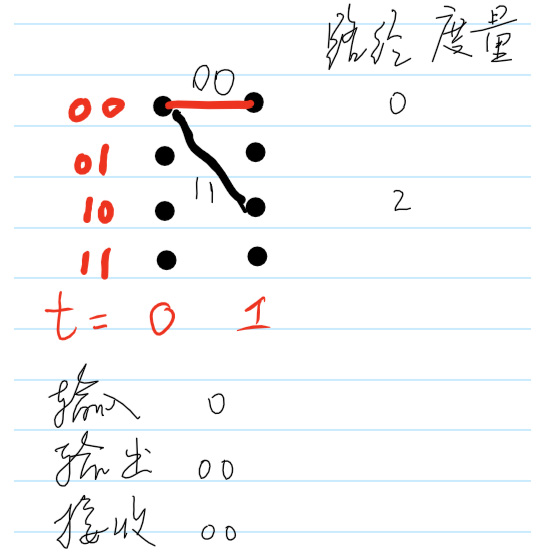 路径度量
00
00 0
01
11
10 2
11
t= 0 1
输入 0
输出 00
接收 00